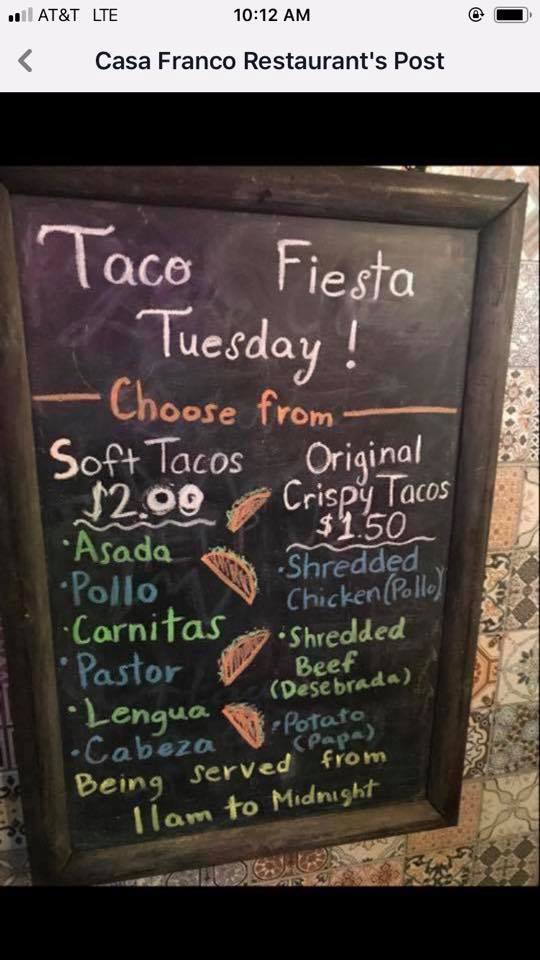 AT&T LTE 10:12 AM
Casa Franco Restaurant's Post
Taco Fiesta
Tuesday !
Choose from
Soft Tacos
$2.00
·Asada
·Pollo
·Carnitas
·Pastor
·Lengua
·Cabeza
Original
Crispy Tacos
$1.50
·Shredded
Chicken (Pollo)
·Shredded
Beef
(Desebrada)
·Potato
(Papa)
Being served from
11am to Midnight